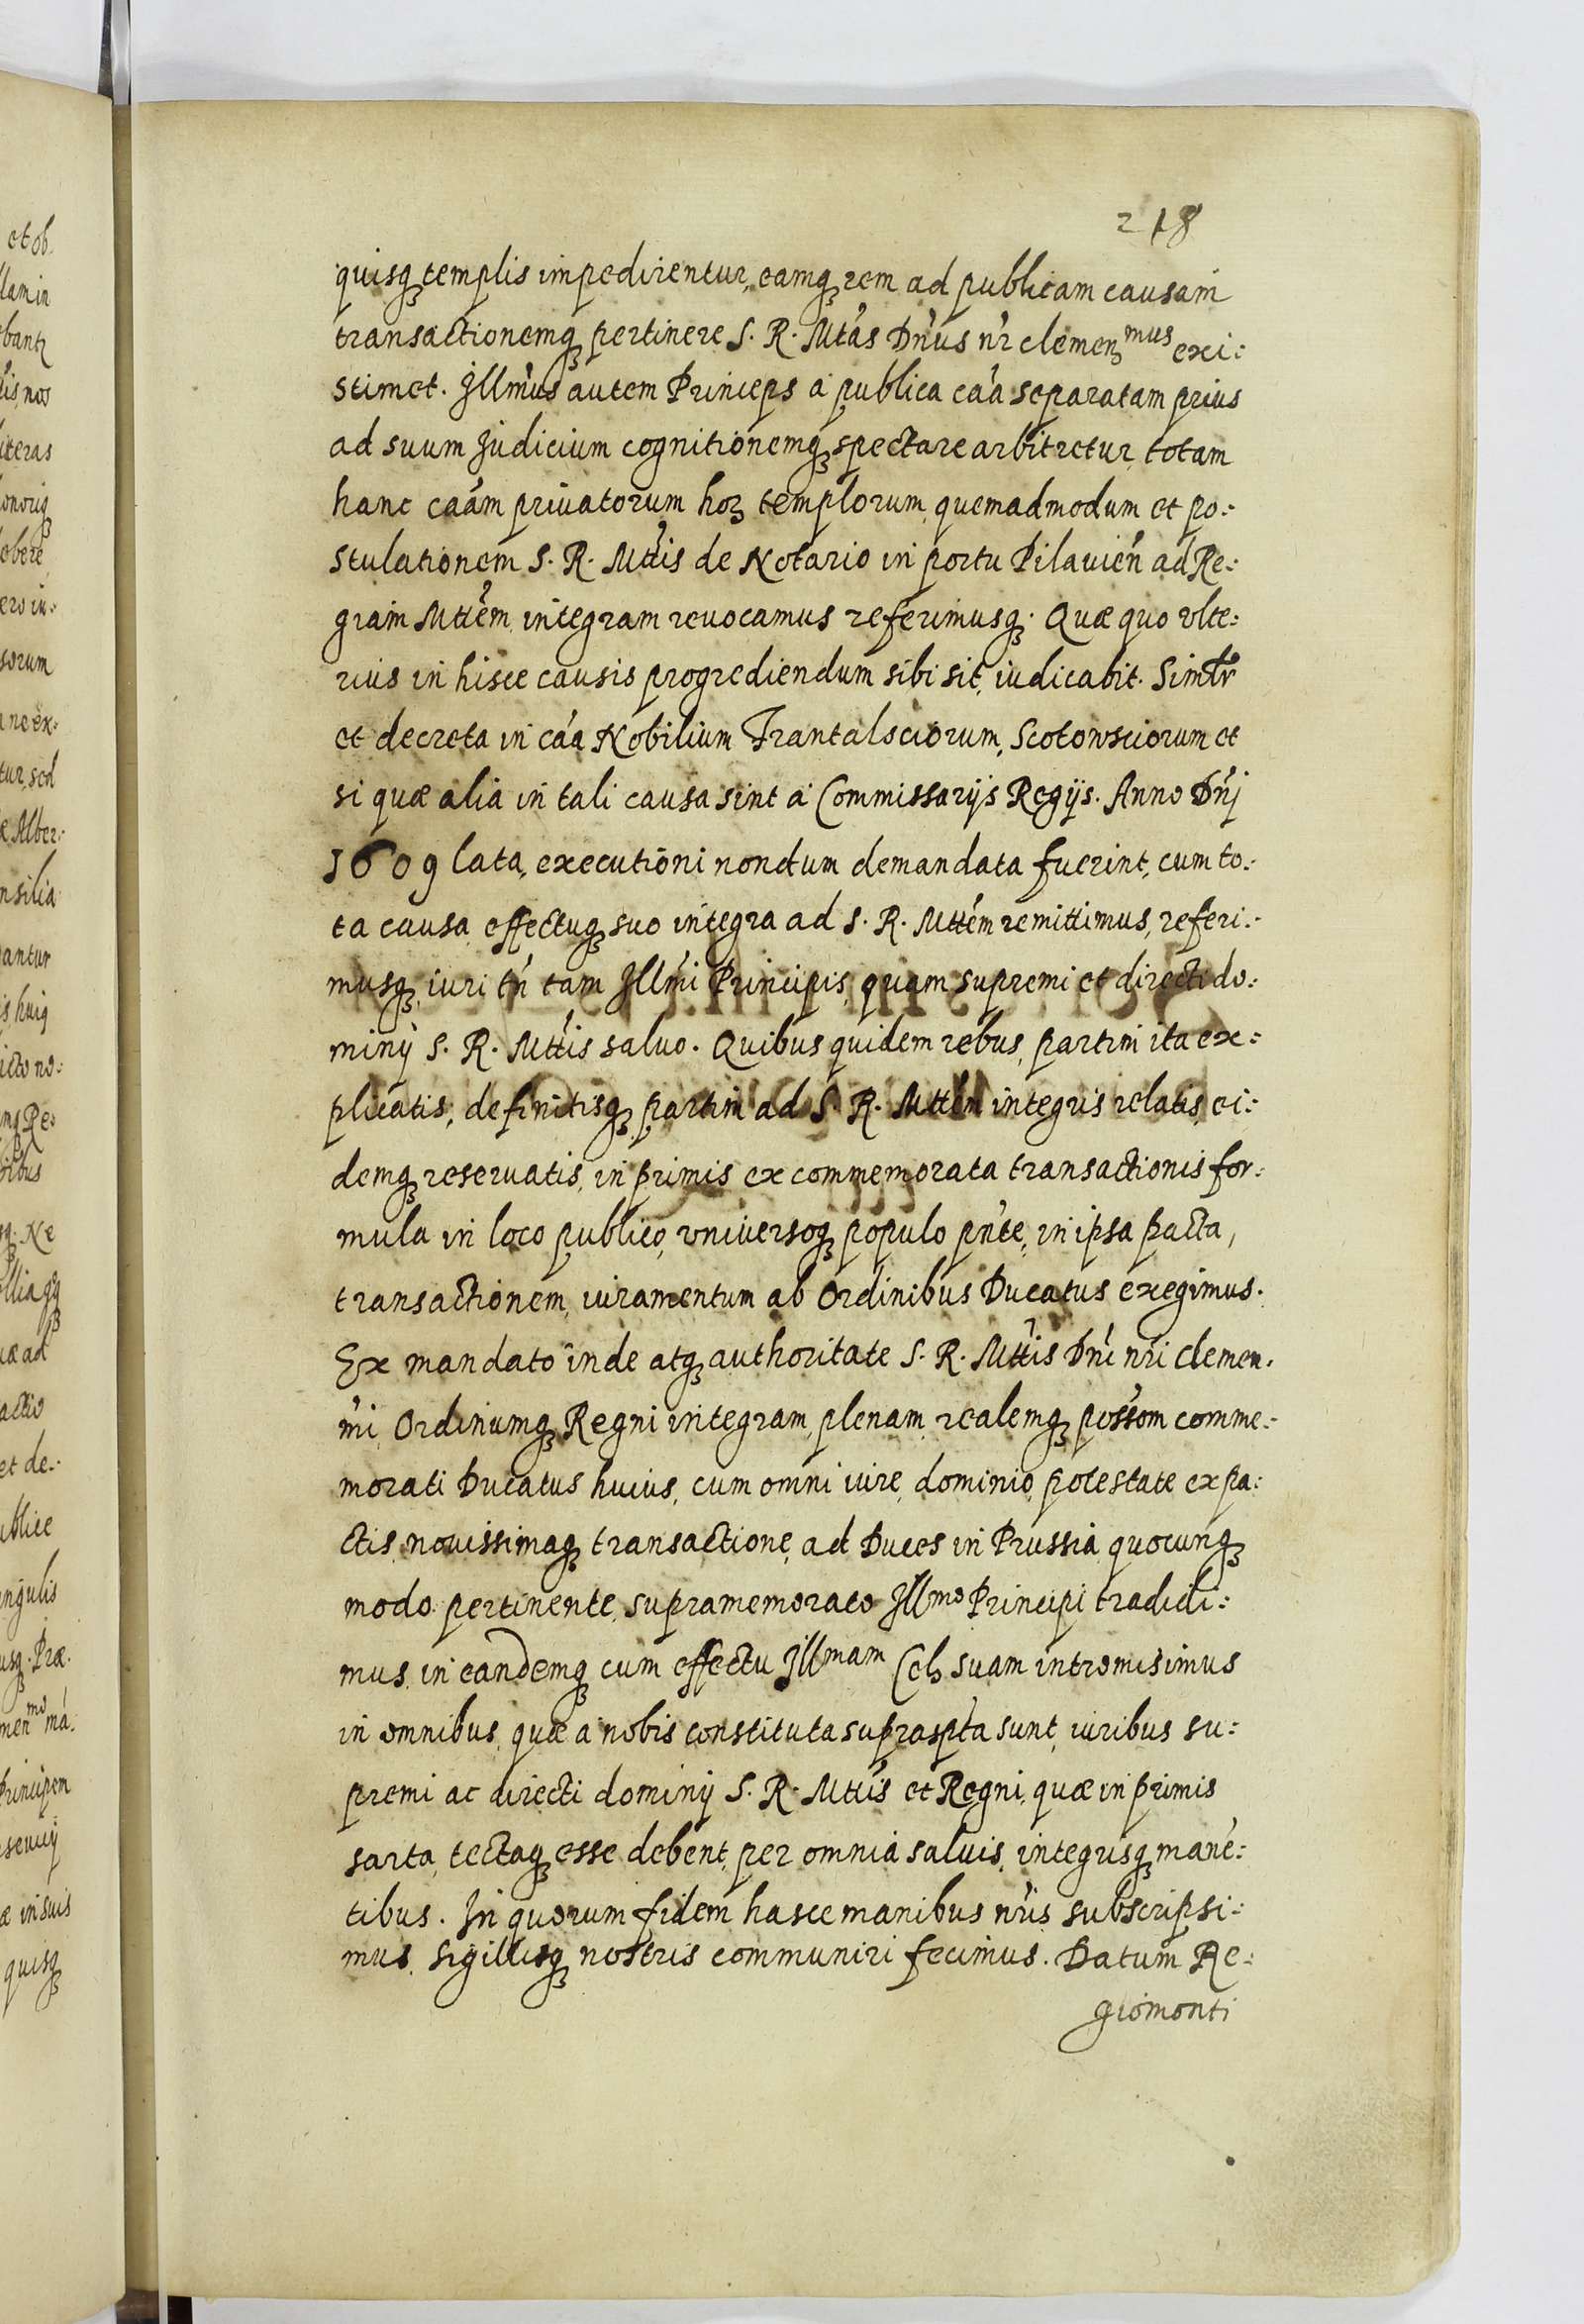 218
quisq templis impedirentur, eamq rem ad publicam causam
transactionemq pertinere S. R. Mtas Dnus nr clemen mus exi:
stimet. Illmus autem Princeps a publica caa separatam prius
ad suum Judicium cognitionemq spectare arbitretur, totam
hanc caam privatorum hoz templorum, quemadmodum et po:
stulationem S. R. Mttis de Notario in portu Pilavien ad Re:
giam Mttem integram revocamus referimusq. Quæ quo vlte:
rius in hisce causis progrediendum sibi sit, iudicabit. Simtr
et decreta in caa Nobilium Frantalsciorum, Scotowsciorum et
si quæ alia in tali causa sint a Commissarijs Regijs. Anno Dnj
1609 lata, executioni nondum demandata fuerint, cum to:
ta causa effectuq suo integra ad S. R. Mttem remittimus, referi:
musq, iuri tn tam Illmi Principis, quam supremi et directi do:
minij S. R. Mttis salvo. Quibus quidem rebus, partim ita ex:
plicatis, definitisq partim ad S. R. Mttem integris relatis, ei:
demq reservatis, in primis ex commemorata transactionis for:
mula in loco publico, vniversoq populo pnte, in ipsa pacta,
transactionem, iuramentum ab Ordinibus Ducatus exegimus.
Ex mandato inde atq authoritate S. R. Mttis Dni nri clemen.
mi Ordinumq Regni integram, plenam, realemq possom comme:
morati Ducatus huius, cum omni iure, dominio, potestate ex pa:
ctis, novissimaq transactione, ad Duces in Prussia quocunq
modo pertinente, supramemorato Illmo Principi tradidi:
mus, in eandemq cum effectu Illmam Cels suam intromisimus
in omnibus, quæ a nobis constituta suprasptа sunt, iuribus su:
premi ac directi dominij S. R. Mttis et Regni, quæ in primis
sarta, tectaq esse debent, per omnia salvis, integrisq mane:
tibus. In quorum fidem hasce manibus nris subscripsi:
mus, sigillisq nostris communiri fecimus. Datum Re:
giomonti